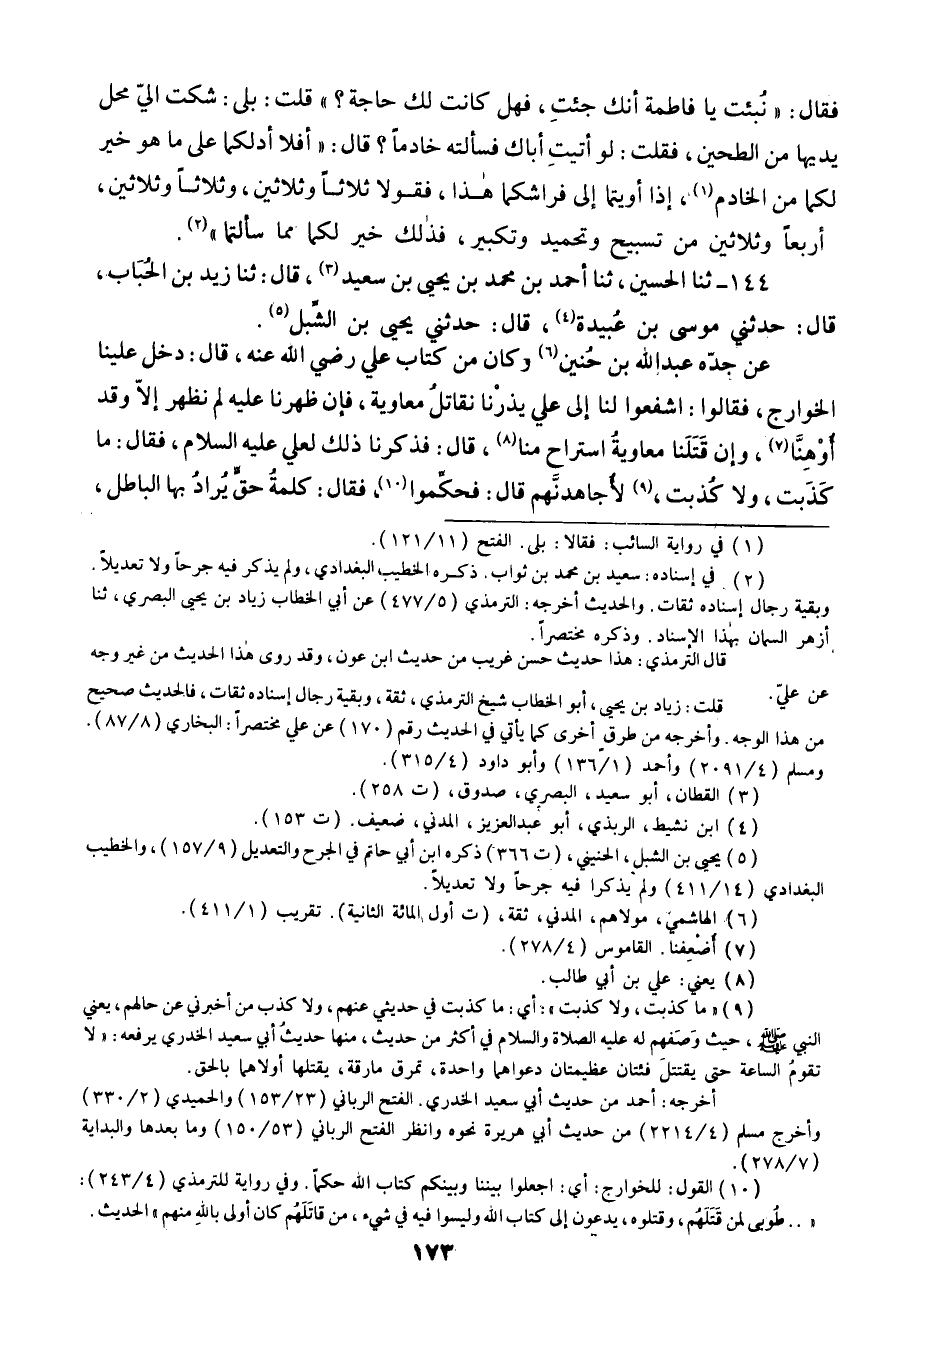 فقال : « نُبئت يا فاطمة أنك جئتِ ، فهل كانت لك حاجة ؟ » قلت : بلى : شكت اليّ محل
يديها من الطحين ، فقلت : لو أتيتِ أباك فسألته خادماً ؟ قال : « أفلا أدلكما على ما هو خير
لكما من الخادم(١) ، إذا أويتما إلى فراشكما هٰذا ، فقولا ثلاثاً وثلاثين ، وثلاثاً وثلاثين ،
أربعاً وثلاثين من تسبيح وتحميد وتكبير ، فذٰلك خير لكما مما سألتما »(٢) .
١٤٤ ـ ثنا الحسين ، ثنا أحمد بن محمد بن يحيى بن سعيد(٣) ، قال : ثنا زيد بن الحُبَاب ،
قال : حدثني موسى بن عُبيدة(٤) ، قال : حدثني يحيى بن الشِّبل(٥) .
عن جدّه عبدالله بن حُنين(٦) وكان من كتاب علي رضي الله عنه ، قال : دخل علينا
الخوارج ، فقالوا : اشفعوا لنا إلى علي يذرْنا نقاتلُ معاوية ، فإن ظهرنا عليه لم نظهر إلاّ وقد
أُوْهِنَّا(٧) ، وإن قَتَلَنا معاويةُ استراح منا(٨) ، قال : فذكرنا ذلك لعلي عليه السلام ، فقال : ما
كَذَبت ، ولا كُذبت ،(٩) لأجاهدنَّهم قال : فحكِّموا(١٠)، فقال : كلمةُ حقٍّ يُرادُ بها الباطل ،
(١) في رواية السائب : فقالا : بلى . الفتح (١٢١/١١).
(٢) في إسناده : سعيد بن محمد بن ثواب . ذكره الخطيب البغدادي ، ولم يذكر فيه جرحاً ولا تعديلاً .
وبقية رجال إسناده ثقات . والحديث أخرجه : الترمذي (٤٧٧/٥) عن أبي الخطاب زياد بن يحيى البصري ، ثنا
أزهر السمان بهٰذا الإسناد . وذكره مختصراً .
قال الترمذي : هذا حديث حسن غريب من حديث ابن عون ، وقد روى هذا الحديث من غير وجه
عن عليّ .
قلت : زياد بن يحيى ، أبو الخطاب شيخ الترمذي ، ثقة ، وبقية رجال إسناده ثقات ، فالحديث صحيح
من هذا الوجه . وأخرجه من طرقٍ أخرى كما يأتي في الحديث رقم (١٧٠) عن علي مختصراً : البخاري (٨٧/٨) .
ومسلم (٢٠٩١/٤) وأحمد (١٣٦/١) وأبو داود (٣١٥/٤).
(٣) القطان ، أبو سعيد ، البصري ، صدوق ، (ت ٢٥٨).
(٤) ابن نشيط ، الربذي ، أبو عبدالعزيز ، المدني ، ضعيف . (ت ١٥٣).
(٥) يحيى بن الشبل ، الحنيني ، (ت ٣٦٦) ذكره ابن أبي حاتم في الجرح والتعديل (١٥٧/٩) ، والخطيب
البغدادي (٤١١/١٤) ولم يذكرا فيه جرحاً ولا تعديلاً .
(٦) الهاشميّ ، مولاهم ، المدني ، ثقة ، (ت أول المائة الثانية) . تقريب (٤١١/١).
(٧) أَضْعِفنا . القاموس (٢٧٨/٤).
(٨) يعني : علي بن أبي طالب .
(٩) « ما كذبت ، ولا كذبت » : أي : ما كذبت في حديثي عنهم ، ولا كذب من أخبرني عن حالهم ، يعني
النبي ﷺ ، حيث وَصَفهم له عليه الصلاة والسلام في أكثر من حديث ، منها حديثُ أبي سعيد الخدري يرفعه : « لا
تقومُ الساعة حتى يقتتلَ فئتان عظيمتان دعواهما واحدة ، تمرق مارقة ، يقتلها أولاهما بالحق .
أخرجه : أحمد من حديث أبي سعيد الخدري . الفتح الرباني (١٥٣/٢٣) والحميدي (٣٣٠/٢)
وأخرج مسلم (٢٢١٤/٤) من حديث أبي هريرة نحوه وانظر الفتح الرباني (١٥٠/٥٣) وما بعدها والبداية
(٢٧٨/٧).
(١٠) القول : للخوارج : أي : اجعلوا بيننا وبينكم كتاب الله حكماً . وفي رواية للترمذي (٢٤٣/٤) :
« . . طُوبى لمن قَتَلَهُم ، وقتلوه ، يدعون إلى كتاب الله وليسوا فيه في شيء ، من قاتَلَهُم كان أولى بالله منهم » الحديث .
١٧٣